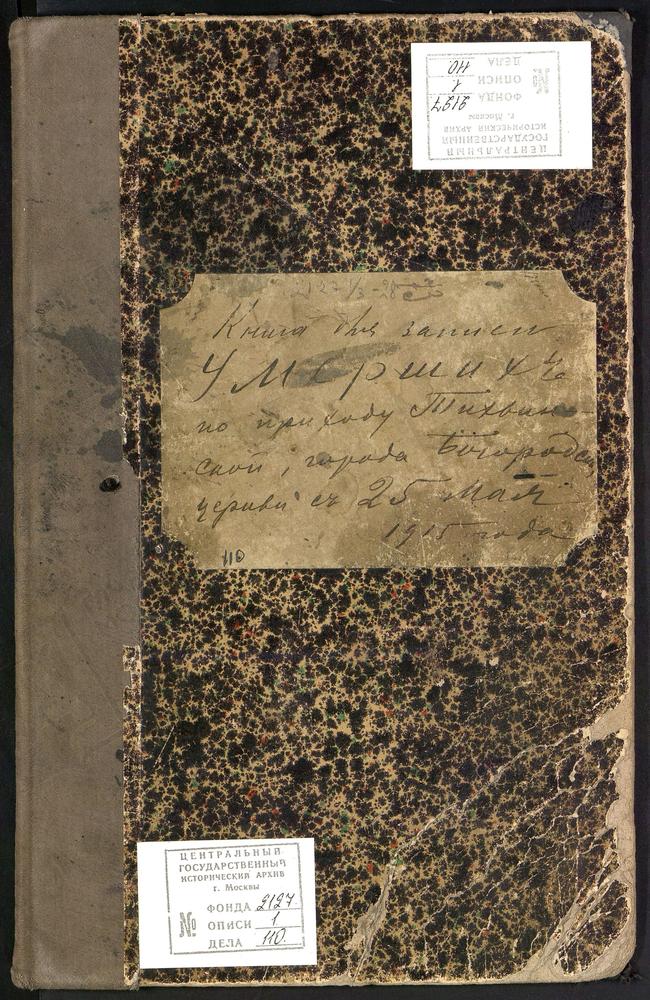 ЦЕНТРАЛЬНЫЙ
ГОСУДАРСТВЕННЫЙ
ИСТОРИЧЕСКИЙ АРХИВ
г. Москвы
№
ФОНДА 2127
ОПИСИ 1
ДЕЛА 110
Книга для записи
Умершихъ
по приходу Тихвин-
ской, города Богородска
церкви съ 25 Мая
1915 года
110
ЦЕНТРАЛЬНЫЙ
ГОСУДАРСТВЕННЫЙ
ИСТОРИЧЕСКИЙ АРХИВ
г. Москвы
№
ФОНДА 2127.
ОПИСИ 1
ДЕЛА 110.